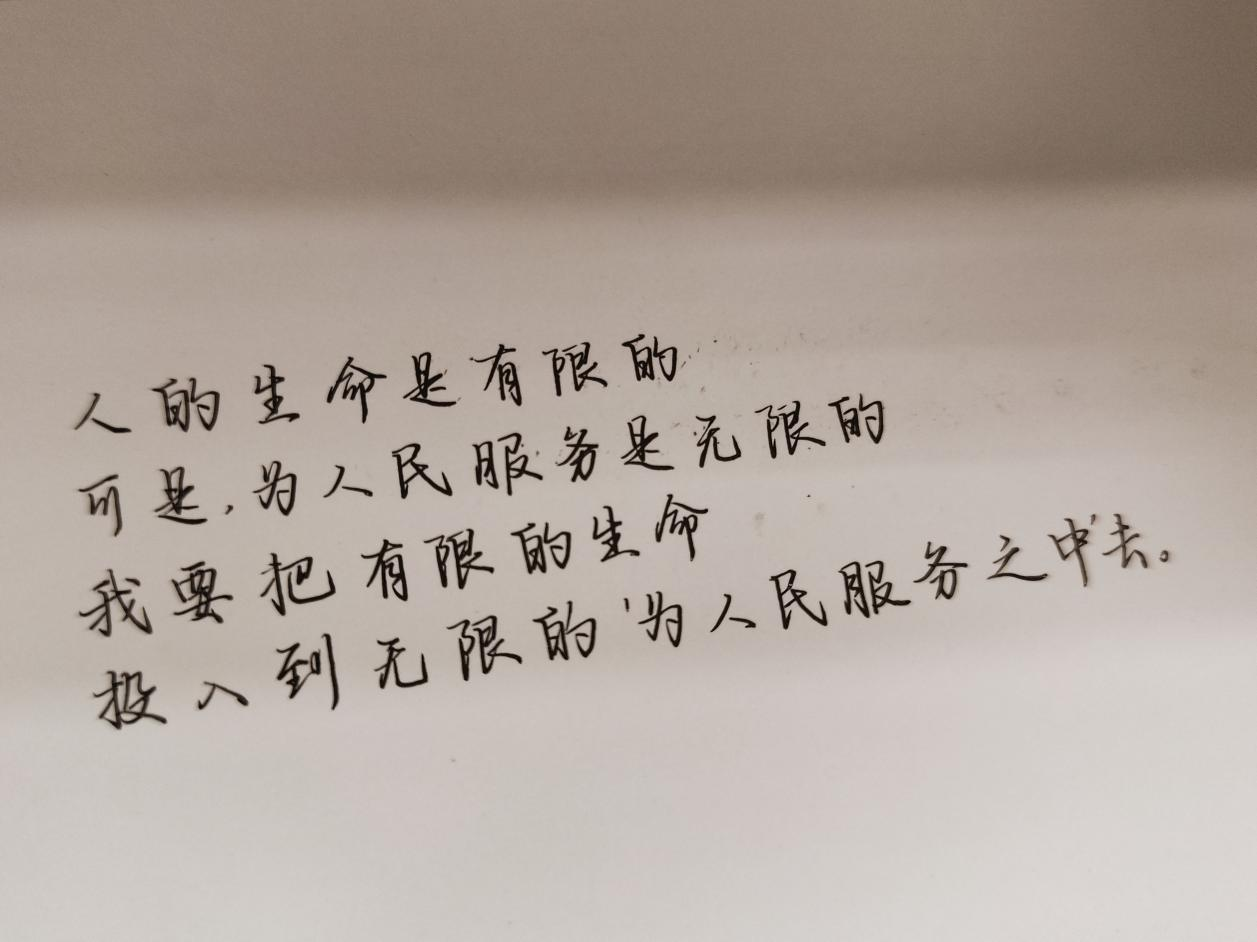 人的生命是有限的
可是,为人民服务是无限的
我要把有限的生命
投入到无限的'为人民服务之中'去。